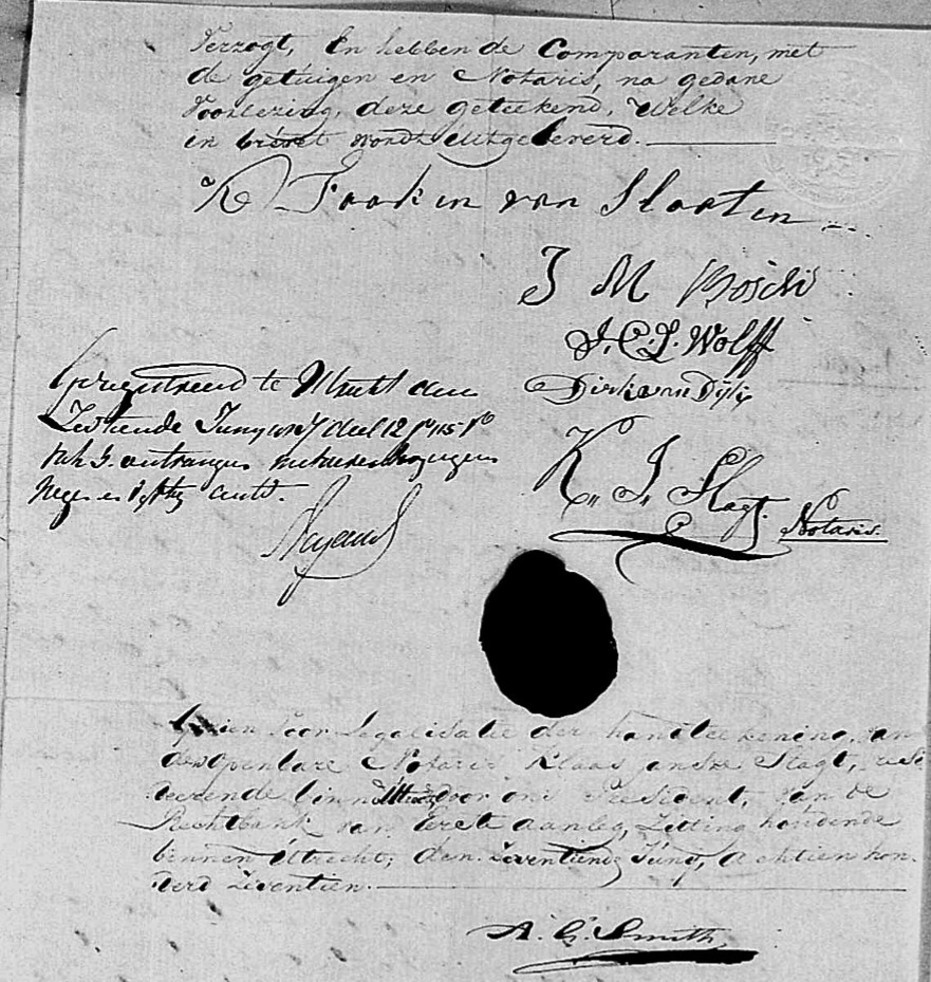 verzogt, En hebben de Comparanten, met
de getuigen en Notaris, na gedane
voorlezing, deze geteekend, Welke
in brevet wordt uitgeleverd.
van Slooten
J M Bosch
J. C. L. Wolff
Dirk van Dijk
K. J. Slagt. Notaris.
Geregistreerd te Utrecht den
Zestiende Juny 1817 deel 12 f° 115 r°
vak 5. ontvangen
negen en vyftig cents.
Gezien voor Legalisatie der handteekening, van
den openbare Notaris Klaas Slagt, resi-
deerende binnen Utrecht door ons President, van de
Rechtbank van Eerste Aanleg, Zitting houdende
binnen Utrecht; den Zeventiende Juny, Achtien hon-
derd Zeventien.
A. G. Smith